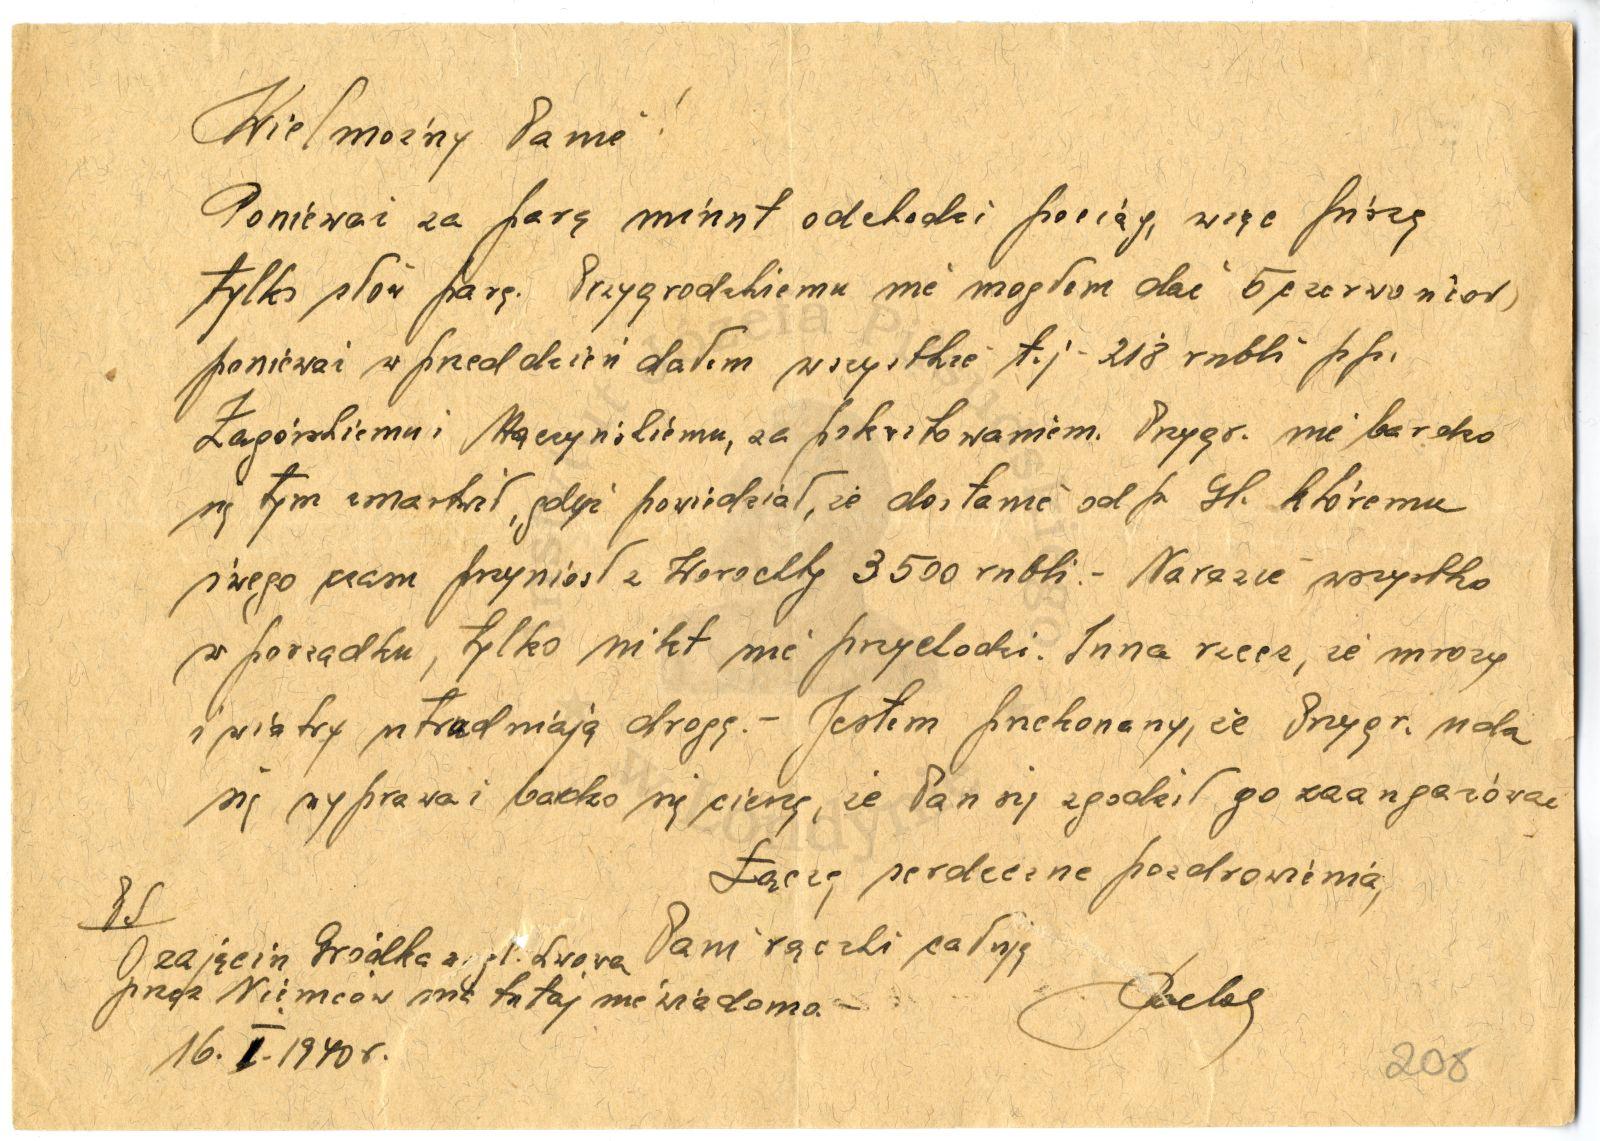 Wielmożny Panie!
Ponieważ za parę minut odchodzi pociąg, więc piszę
tylko słów parę. Przygrodzkiemu nie mogłem dać 5 czerwońców
ponieważ w przeddzień dałem wszystkie t.j. 218 rubli p.p.
Zagórskiemu i Mączyńskiemu, za pokwitowaniem. Przygr. nie bardzo
się tym zmartwił, gdyż powiedział, że dostanie od p. Gł. któremu
swego czasu przyniósł z Worochty 3500 rubli.- Narazie wszystko
w porządku, tylko nikt nie przychodzi. Inna rzecz, że mrozy
i wiatry utrudniają drogę.- Jestem przekonany, że Przygr. uda
się wyprawa i bardzo się cieszę, że Pan się zgodził go zaangażować
Łączę serdeczne pozdrowienia,
Pani rączki całuję
PS
O zajęciu Gródka Lwowa
przez Niemców nic tutaj nie wiadomo.-
16. I. 1940 r.
208
Instytut Józefa Piłsudskiego
w Londynie